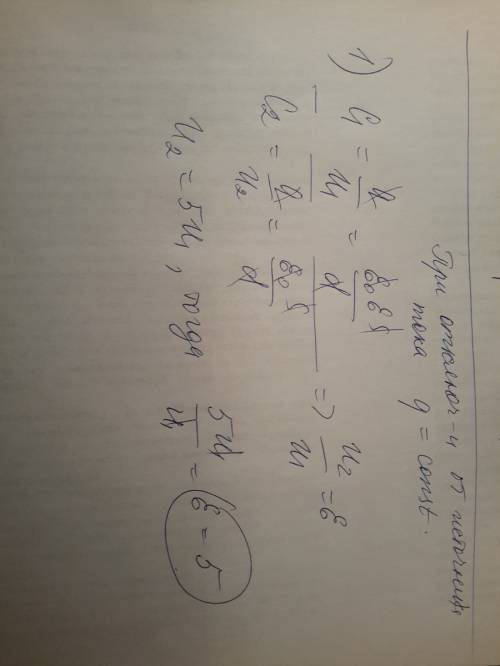 При отключ-и от источника
тока q = const.
1) C₁ = q/U₁ = ε₀εS/d
C₂ = q/U₂ = ε₀S/d => U₂/U₁ = ε
U₂ = 5U₁, тогда 5U₁/U₁ = ε = 5